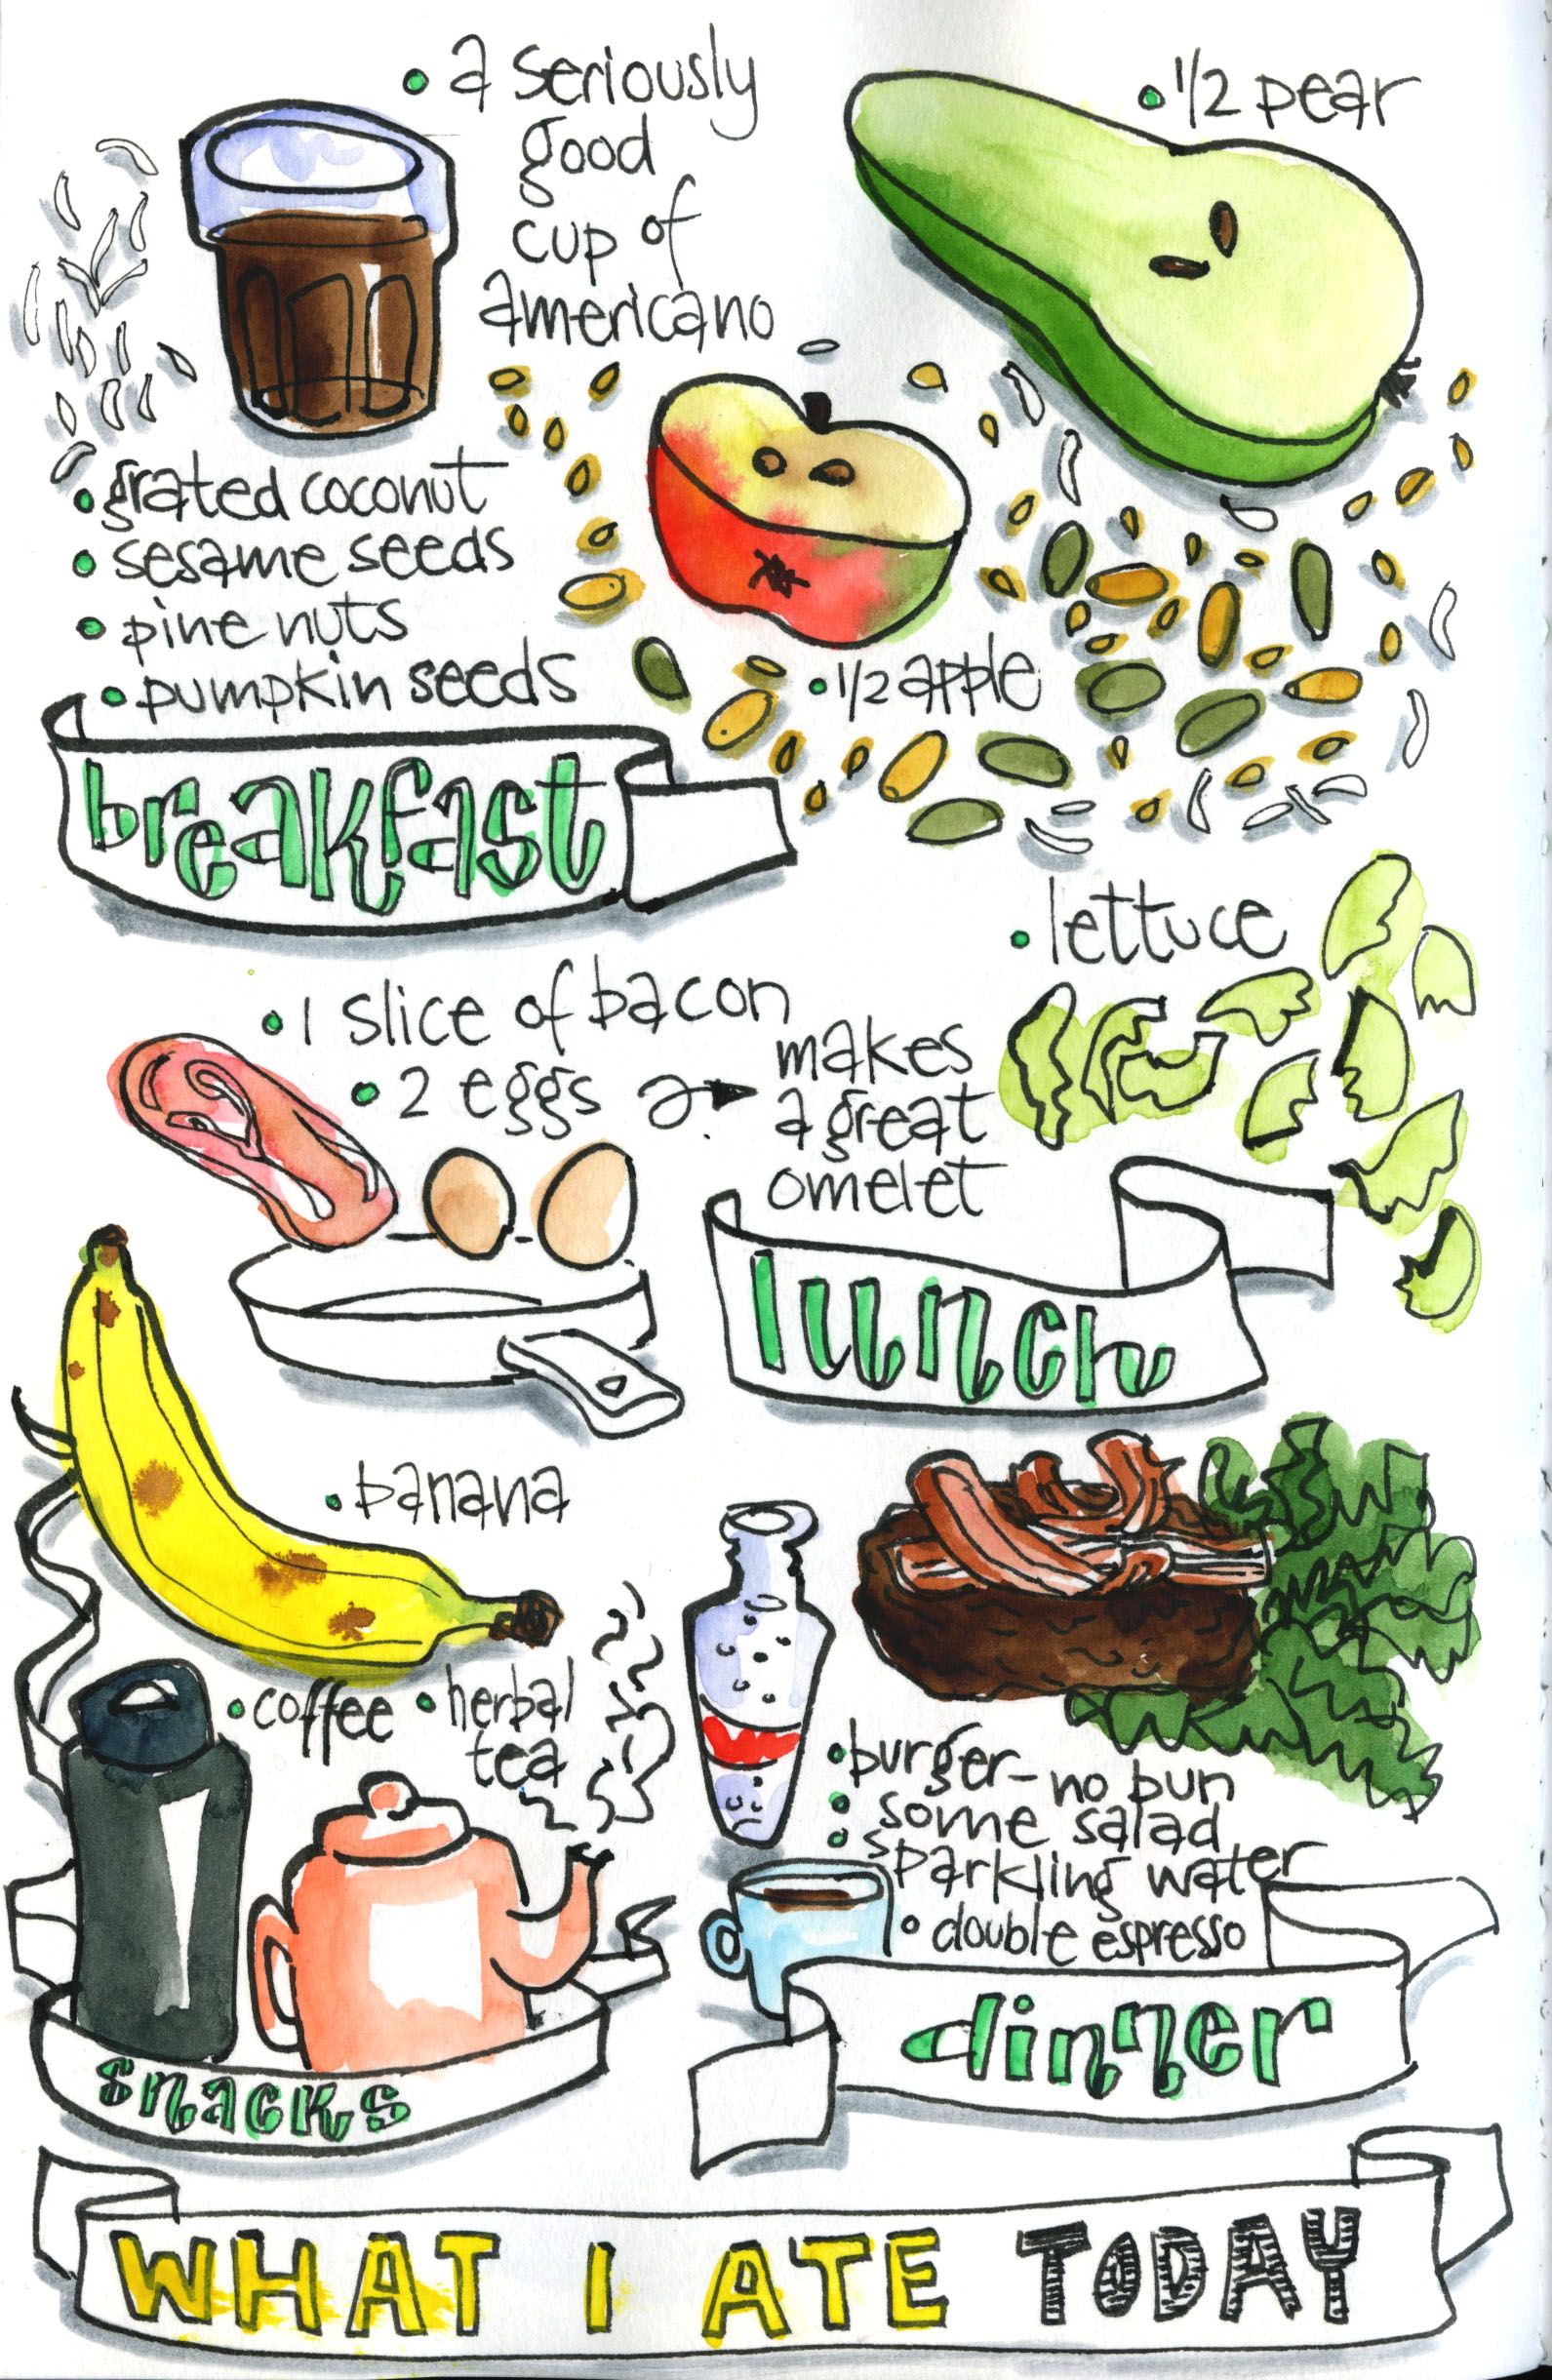 • a seriously
good
cup of
americano
• 1/2 pear
• grated coconut
• sesame seeds
• pine nuts
• pumpkin seeds
• 1/2 apple
breakfast
• lettuce
• 1 slice of bacon
• 2 eggs
makes
a great
omelet
lunch
• banana
• coffee
• herbal
tea
snacks
• burger - no bun
• some salad
• sparkling water
• double espresso
dinner
WHAT I ATE TODAY